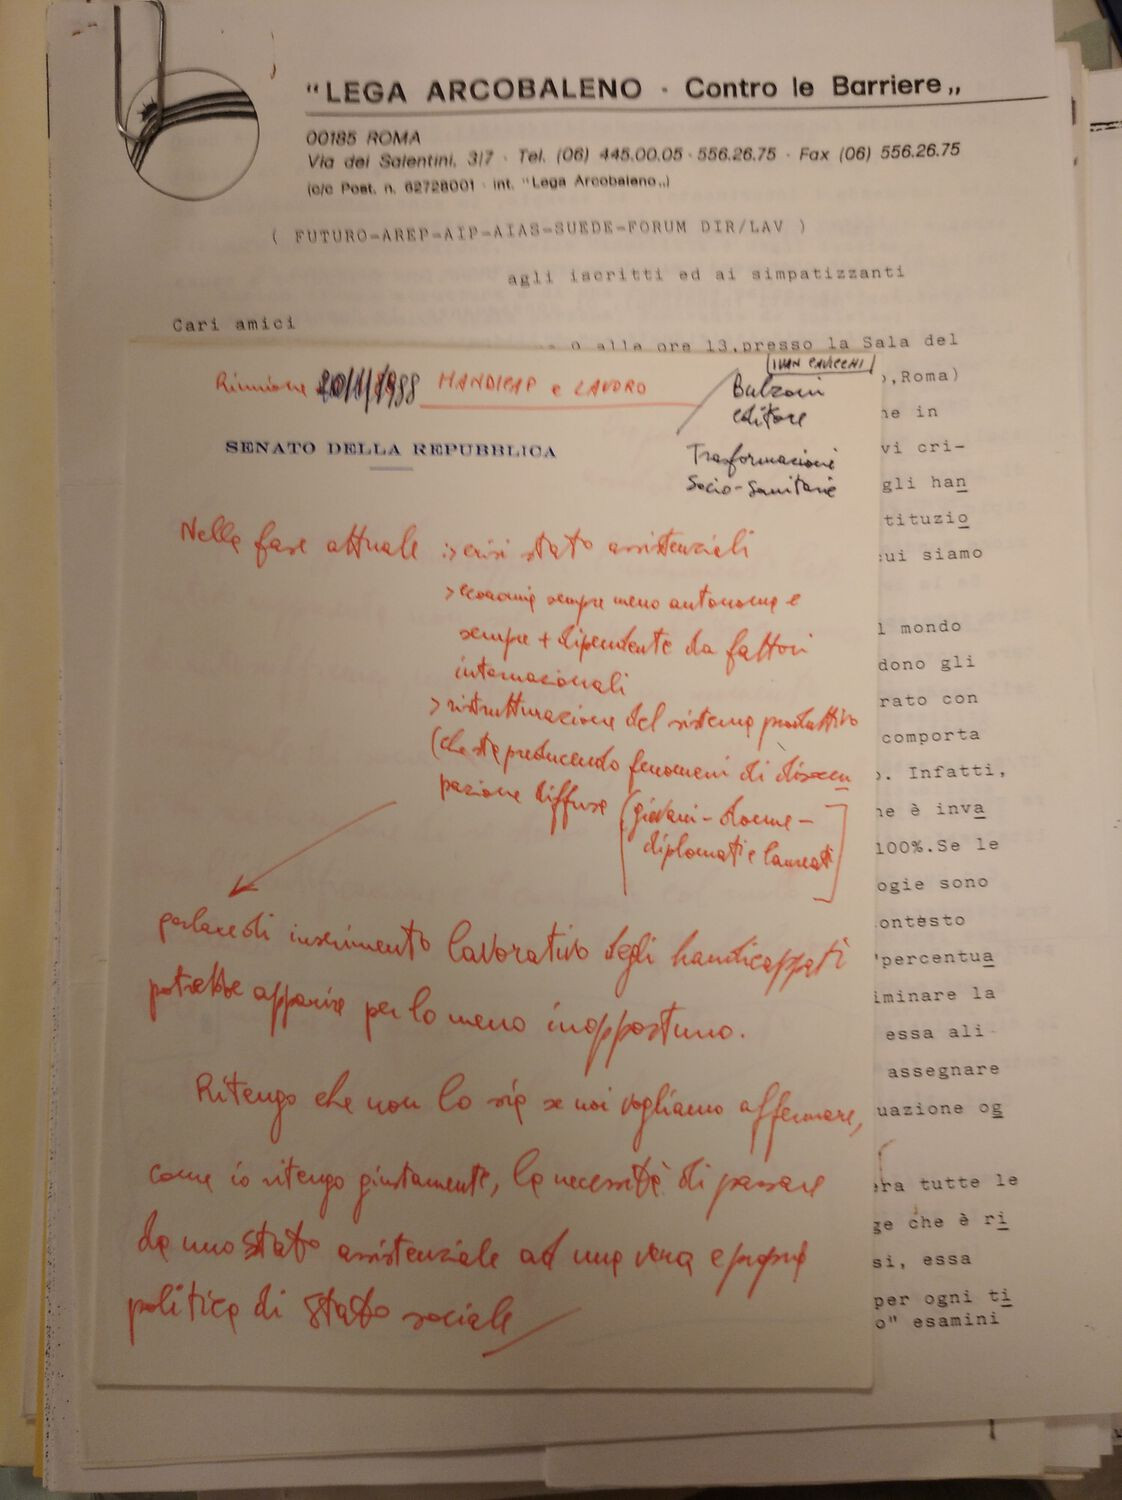 "LEGA ARCOBALENO - Contro le Barriere„
00185 ROMA
Via dei Salentini, 3/7 - Tel. (06) 445.00.05 - 556.26.75 - Fax (06) 556.26.75
(c/c Post. n. 62728001 - int. "Lega Arcobaleno„)
( FUTURO-AREP-AIP-AIAS-SUEDE-FORUM DIR/LAV )
agli iscritti ed ai simpatizzanti
Cari amici
o alle ore 13,presso la Sala del
o,Roma)
ne in
vi cri-
gli han
tituzio
cui siamo
l mondo
dono gli
rato con
comporta
o. Infatti,
ne è inva
100%.Se le
ogie sono
ontesto
"percentua
iminare la
essa ali-
assegnare
uazione og
era tutte le
ge che è ri
si, essa
per ogni ti
o" esamini
Riunione 20/11/1988 HANDICAP e LAVORO
IVAN CAVICCHI
Bulzoni
editore
Trasformazioni
Socio-Sanitarie
SENATO DELLA REPUBBLICA
Nella fase attuale :> crisi stato assistenziali
> economie sempre meno autonome e
sempre + dipendente da fattori
internazionali
> ristrutturazione del sistema produttivo
(che sta producendo fenomeni di disoccu
pazione diffusa (giovani - donne -
diplomati e laureati)
parlare di inserimento lavorativo degli handicappati
potrebbe apparire per lo meno inopportuno.
Ritengo che non lo sia se noi vogliamo affermare,
come io ritengo giustamente, la necessità di passare
da uno stato assistenziale ad una vera e propria
politica di stato sociale